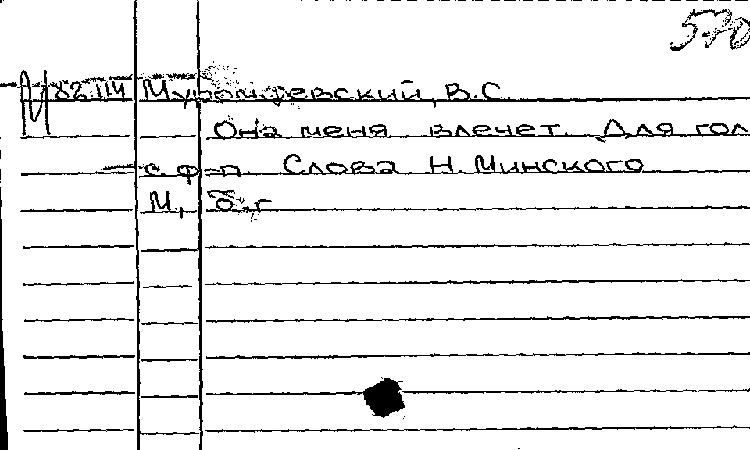 570
М 82.114 Муромцевский, В.С.
Она меня влечет. Для гол
с ф-п Слова Н. Минского
М., б.г